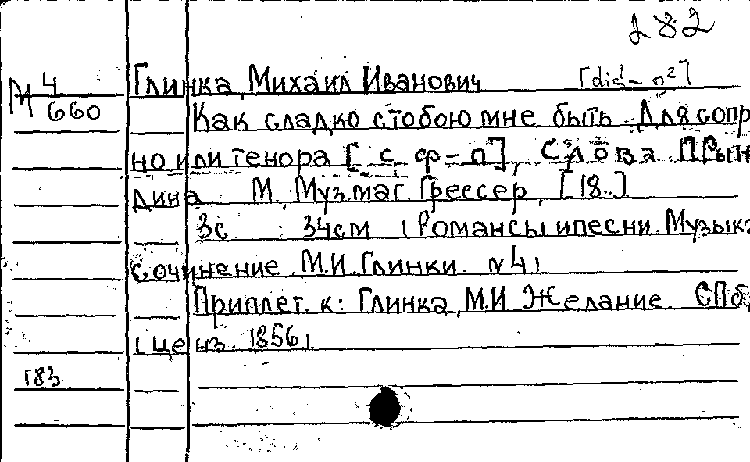 282
М 4
660
Глинка, Михаил Иванович [dis-a²]
Как сладко стобою мне быть. Для сопра
но или тенора [с ф-п], Слова П.Рын
дина М. Муз.маг. Грессер, [18..]
3с. 34см (Романсы и песни. Музыка
сочинение М.И. Глинки. N4)
Приплет. к: Глинка, М.И. Желание. СПб,
(ценз. 1856)
183